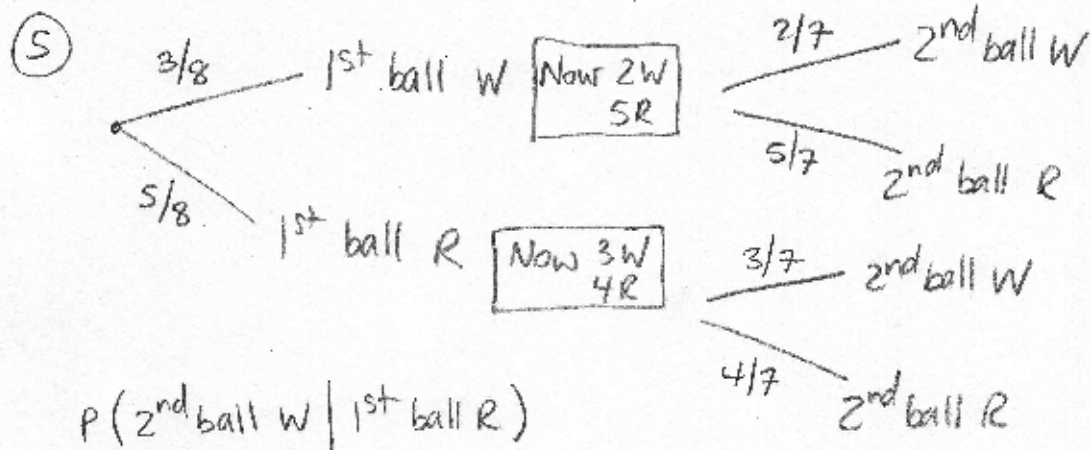 5
3/8
1st ball W
Now 2W
5R
2/7
2nd ball W
5/7
2nd ball R
5/8
1st ball R
Now 3W
4R
3/7
2nd ball W
4/7
2nd ball R
P(2nd ball W | 1st ball R)